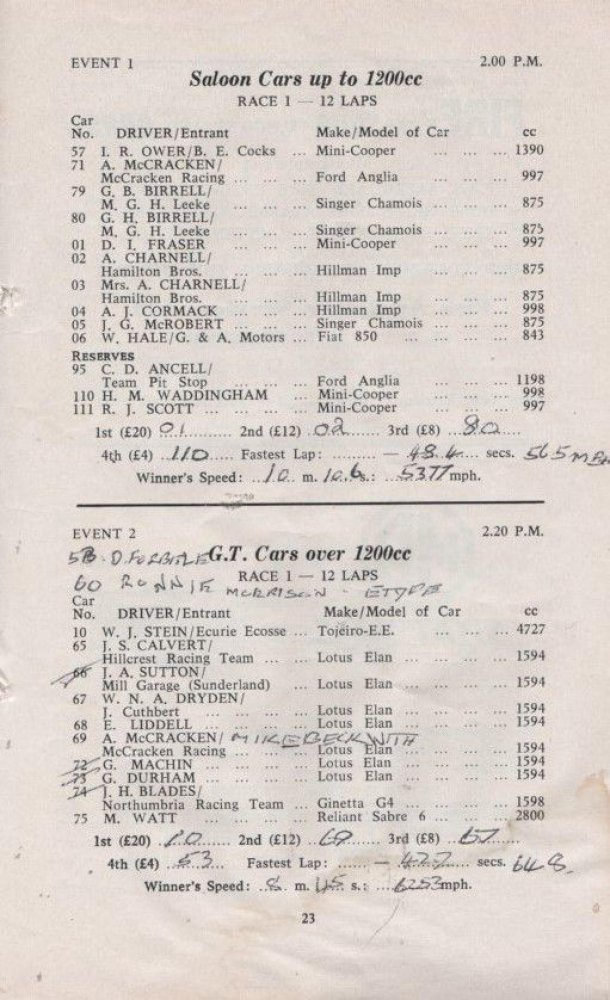 EVENT 1 2.00 P.M.
Saloon Cars up to 1200cc
RACE 1 — 12 LAPS
Car
No. DRIVER/Entrant Make/Model of Car cc
57 I. R. OWER/B. E. Cocks ... Mini-Cooper ... ... ... 1390
71 A. McCRACKEN/
McCracken Racing ... ... ... Ford Anglia ... ... ... 997
79 G. B. BIRRELL/
M. G. H. Leeke ... ... ... Singer Chamois ... ... ... 875
80 G. H. BIRRELL/
M. G. H. Leeke ... ... ... Singer Chamois ... ... ... 875
01 D. I. FRASER ... ... ... Mini-Cooper ... ... ... 997
02 A. CHARNELL/
Hamilton Bros. ... ... ... Hillman Imp ... ... ... 875
03 Mrs. A. CHARNELL/
Hamilton Bros. ... ... ... Hillman Imp ... ... ... 875
04 A. J. CORMACK ... ... ... Hillman Imp ... ... ... 998
05 J. G. McROBERT ... ... ... Singer Chamois ... ... ... 875
06 W. HALE/G. & A. Motors ... Fiat 850 ... ... ... 843
RESERVES
95 C. D. ANCELL/
Team Pit Stop ... ... ... Ford Anglia ... ... ... 1198
110 H. M. WADDINGHAM ... Mini-Cooper ... ... ... 998
111 R. J. SCOTT ... ... ... ... Mini-Cooper ... ... ... 997
1st (£20) 01 2nd (£12) 02 3rd (£8) 80
4th (£4) 110 Fastest Lap: — 48.4 secs. 56.5 M
Winner's Speed: 10 m. 10.6 s.: 53.77 mph.
EVENT 2 2.20 P.M.
53. D. G.T. Cars over 1200cc
60 RONNIE MORRISON - E TYPE
RACE 1 — 12 LAPS
Car
No. DRIVER/Entrant Make/Model of Car cc
10 W. J. STEIN/Ecurie Ecosse ... Tojeiro-E.E. ... ... ... 4727
65 J. S. CALVERT/
Hillcrest Racing Team ... ... Lotus Elan ... ... ... ... 1594
66 J. A. SUTTON/
Mill Garage (Sunderland) ... Lotus Elan ... ... ... ... 1594
67 W. N. A. DRYDEN/
J. Cuthbert ... ... ... ... Lotus Elan ... ... ... ... 1594
68 E. LIDDELL ... ... ... ... Lotus Elan ... ... ... ... 1594
69 A. McCRACKEN/ MIKE BECKWITH
McCracken Racing ... ... ... Lotus Elan ... ... ... ... 1594
72 G. MACHIN ... ... ... ... Lotus Elan ... ... ... ... 1594
73 G. DURHAM ... ... ... ... Lotus Elan ... ... ... ... 1594
74 J. H. BLADES/
Northumbria Racing Team ... Ginetta G4 ... ... ... ... 1598
75 M. WATT ... ... ... ... Reliant Sabre 6 ... ... ... 2800
1st (£20) 10 2nd (£12) 69 3rd (£8) 67
4th (£4) 53 Fastest Lap: — 42.2 secs. 64.8
Winner's Speed: 8 m. 45 s.: 62.53 mph.
23